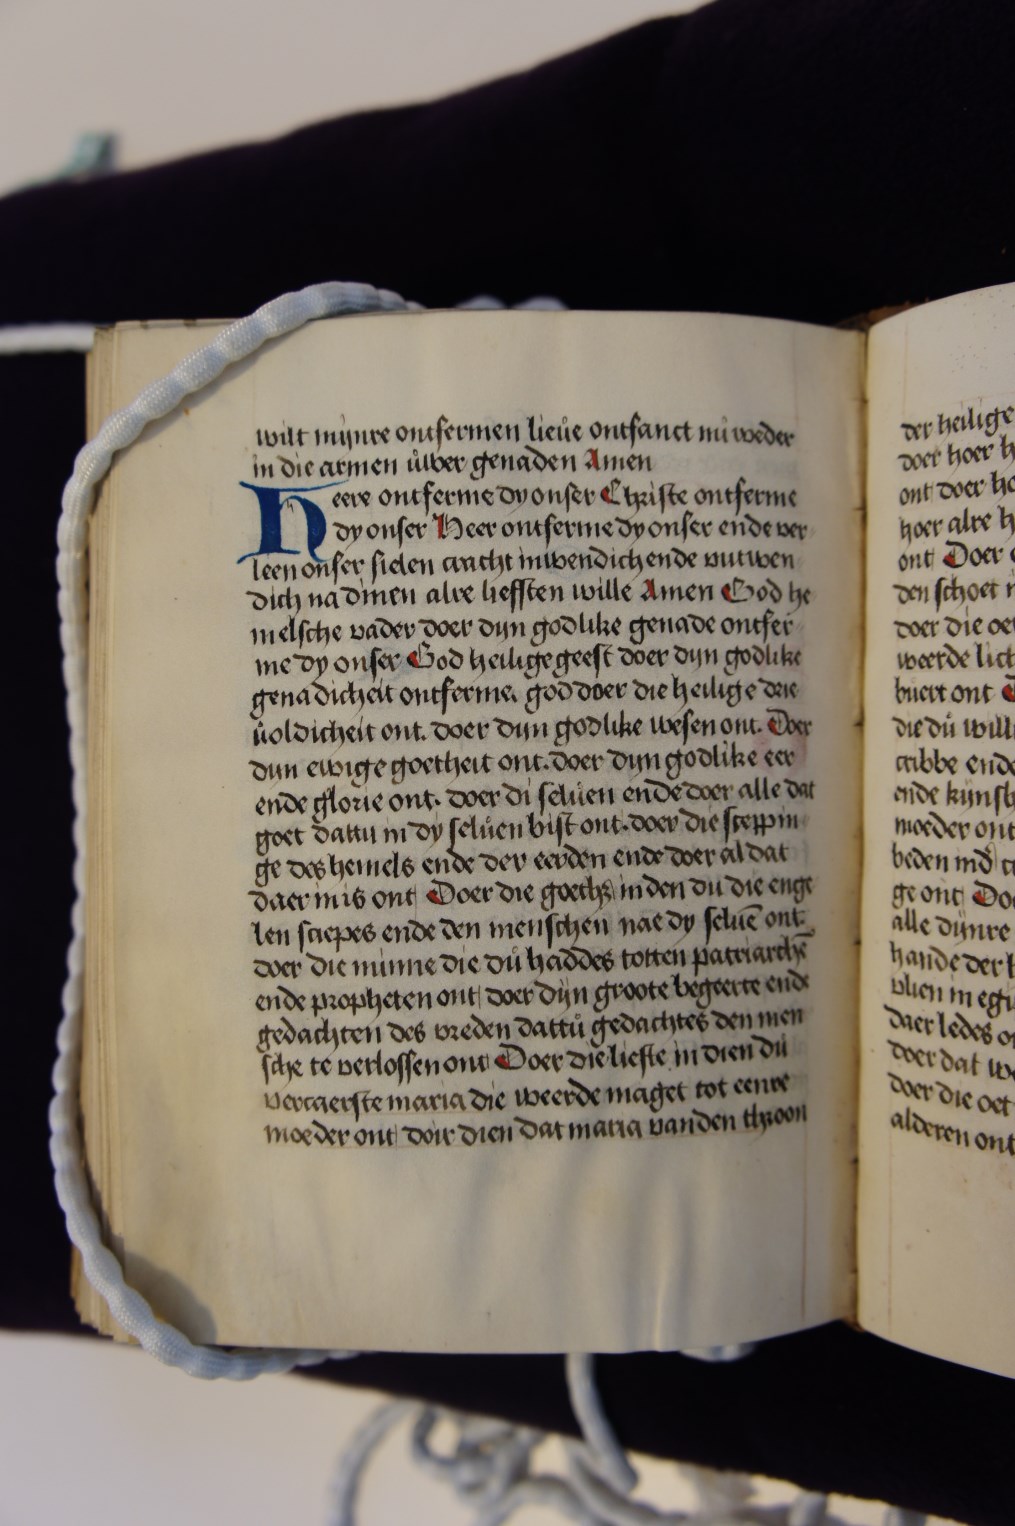 wilt mijnre ontfermen lieue ontfanct nu weder
in die armen uwer genaden Amen
Heere ontferme dy onser Christe ontferme
dy onser Heer ontferme dy onser ende ver
leen onser sielen cracht inwendich ende vutwen
dich na dinen alre liefften wille Amen God he
melsche vader doer dijn godlike genade ontfer
me dy onser God heilige geest doer dijn godlike
genadicheit ontferme. god doer die heilige drie
uoldicheit ont. doer dijn godlike wesen ont. Doer
dijn ewige goetheit ont. doer dijn godlike eer
ende glorie ont. doer di seluen ende doer alle dat
goet dattu in dy seluen bist ont. doer die sceppin
ge des hemels ende der eerden ende doer al dat
daer in is ont Doer die goeth? in den du die enge
len sciepes ende den menschen nae dy seluē ont.
doer die minne die du haddes totten patriarchē
ende propheten ont doer dijn groote begeerte ende
gedachten des vreden dattu gedachtes den men
sche te verlossen ont Doer die liefte in dien du
vercaerste maria die weerde maget tot eenre
moeder ont doir dien dat maria vanden throon
der heilige
doer hoer
ont doer
hoer alre
ont Doer
den schoet
doer die
weerde
buert ont
die du
cribbe ende
ende
moeder ont
beden
ge ont
alle dijnre
hande der
vlien in
daer ledes
doer dat
doer die
alderen ont